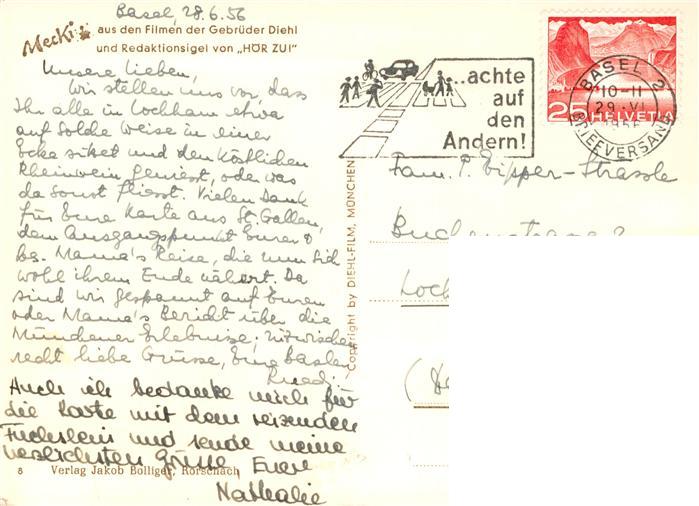 Basel, 28.6.56
Mecki aus den Filmen der Gebrüder Diehl
und Redaktionsigel von „HÖR ZU!"
Unsere Lieben,
Wir stellen uns vor, dass
Ihr alle in Lochham etwa
auf solche Weise in einer
Ecke sitzet und den köstlichen
Rheinwein geniesst, oder was
da sonst fliesst. Vielen Dank
für Eure Karte aus St. Gallen,
dem Ausgangspunkt Eurer &
bes. Mama's Reise, die nun sich
wohl ihrem Ende nähert. Da
sind wir gespannt auf Euren
oder Mama's Bericht über die
Münchener Erlebnisse; inzwischen
recht liebe Grüsse, Eure Basler
Ruedi
Auch ich bedanke mich für
die Karte mit dem reizenden
Füchslein und sende meine
herzlichsten Grüsse Eure
Nathalie
8 Verlag Jakob Bolliger, Rorschach
Copyright by DIEHL-FILM, MÜNCHEN
...achte
auf
den
Andern!
BASEL 2
10-11
29.VI.
1956
BRIEFVERSAND
25 HELVETIA
Fam. P. Tipper-Strassle
Buchenstrasse 2
Loch
(